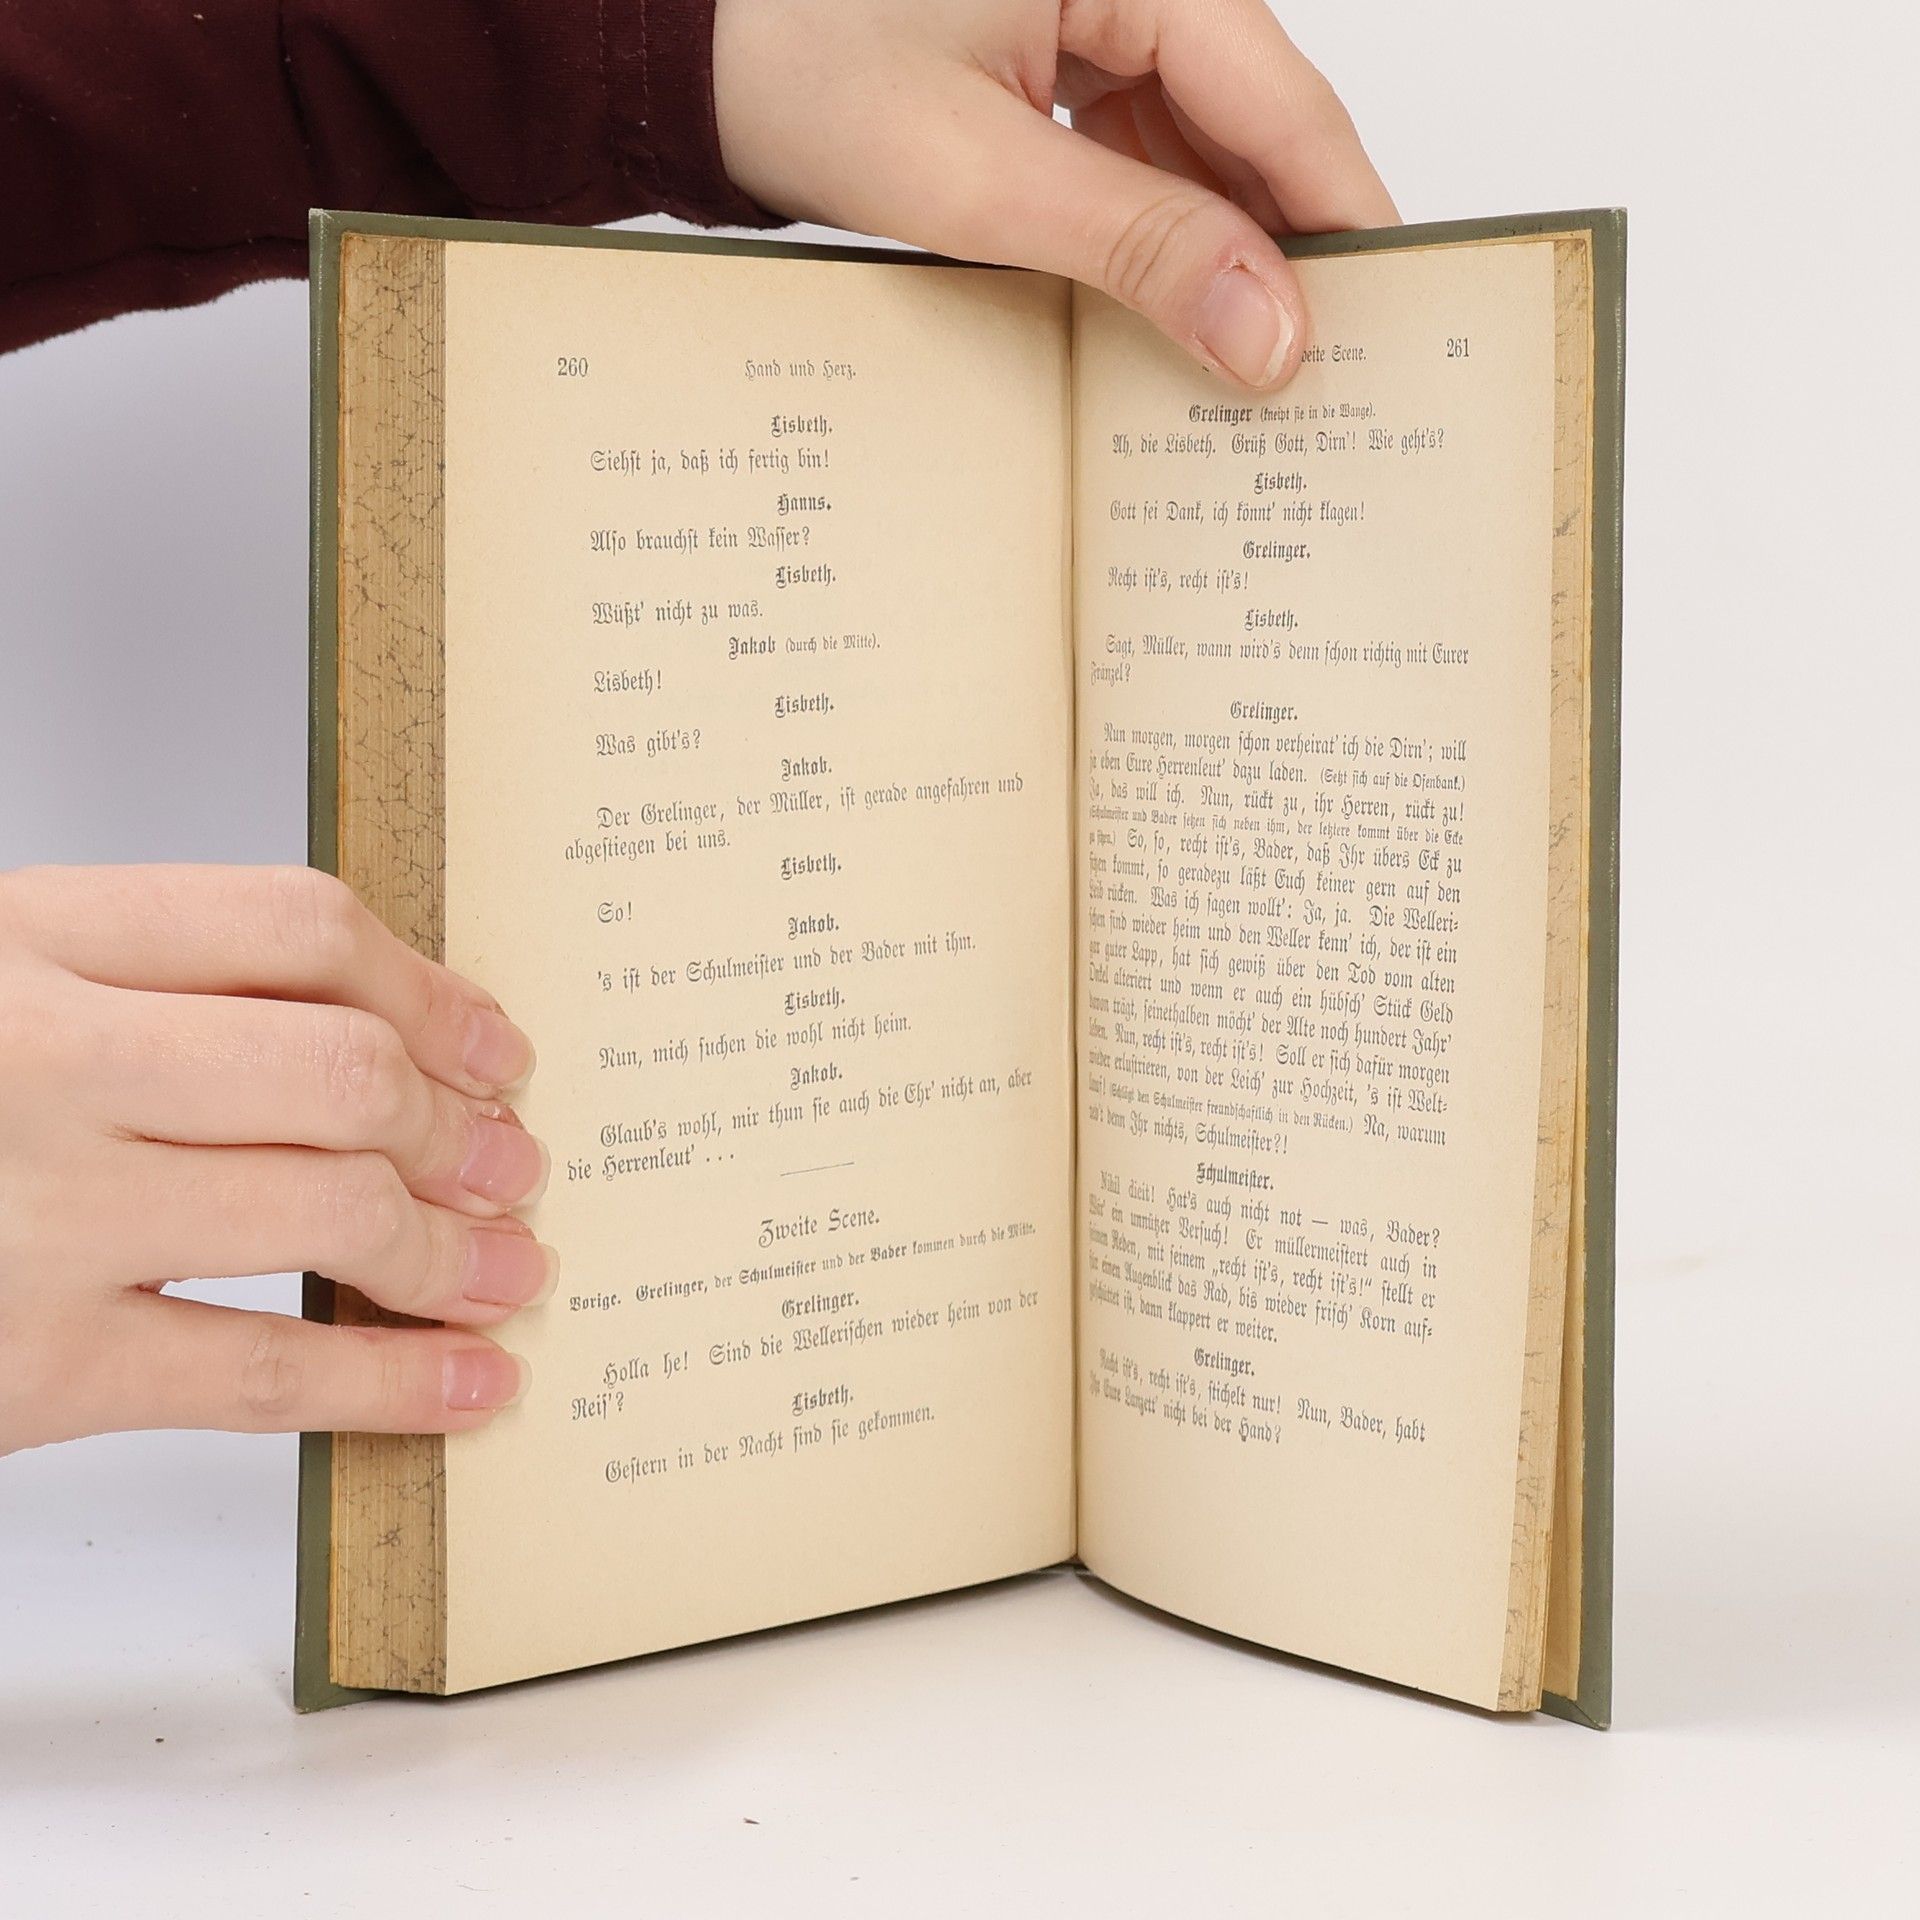 260 Hand und Herz.
Lisbeth.
Siehst ja, daß ich fertig bin!
Hanns.
Also brauchst kein Wasser?
Lisbeth.
Wüßt' nicht zu was.
Jakob (durch die Mitte).
Lisbeth!
Lisbeth.
Was gibt's?
Jakob.
Der Grelinger, der Müller, ist gerade angefahren und
abgestiegen bei uns.
Lisbeth.
So!
Jakob.
's ist der Schulmeister und der Bader mit ihm.
Lisbeth.
Nun, mich suchen die wohl nicht heim.
Jakob.
Glaub's wohl, mir thun sie auch die Ehr' nicht an, aber
die Herrenleut' . . .
Zweite Scene.
Vorige. Grelinger, der Schulmeister und der Bader kommen durch die Mitte.
Grelinger.
Holla he! Sind die Wellerischen wieder heim von der
Reis'?
Lisbeth.
Gestern in der Nacht sind sie gekommen.
Scene. 261
Grelinger (kneipt sie in die Wange).
Ah, die Lisbeth. Grüß Gott, Dirn'! Wie geht's?
Lisbeth.
Gott sei Dank, ich könnt' nicht klagen!
Grelinger.
Recht ist's, recht ist's!
Lisbeth.
Sagt, Müller, wann wird's denn schon richtig mit Eurer
Fränzel?
Grelinger.
Nun morgen, morgen schon verheirat' ich die Dirn'; will
ja eben Eure Herrenleut' dazu laden. (Setzt sich auf die Ofenbank.)
Ja, das will ich. Nun, rückt zu, ihr Herren, rückt zu!
(Schulmeister und Bader setzen sich neben ihm, der letztere kommt über die Ecke
zu sitzen.) So, so, recht ist's, Bader, daß Ihr übers Eck zu
sitzen kommt, so geradezu läßt Euch keiner gern auf den
Leib rücken. Was ich sagen wollt': Ja, ja. Die Welleri-
schen sind wieder heim und den Weller kenn' ich, der ist ein
gar guter Lapp, hat sich gewiß über den Tod vom alten
Onkel alteriert und wenn er auch ein hübsch' Stück Geld
davon trägt, seinethalben möcht' der Alte noch hundert Jahr'
leben. Nun, recht ist's, recht ist's! Soll er sich dafür morgen
wieder erlustrieren, von der Leich' zur Hochzeit, 's ist Welt-
lauf! (Schlägt den Schulmeister freundschaftlich in den Rücken.) Na, warum
denn Ihr nichts, Schulmeister?!
Schulmeister.
Nihil dicit! Hat's auch nicht not — was, Bader?
Wär' ein unnützer Versuch! Er müllermeistert auch in
seinem Reden, mit seinem „recht ist's, recht ist's!“ stellt er
für einen Augenblick das Rad, bis wieder frisch' Korn auf-
geschüttet ist, dann klappert er weiter.
Grelinger.
Recht ist's, recht ist's, stichelt nur! Nun, Bader, habt
Ihr Eure Lanzett' nicht bei der Hand?